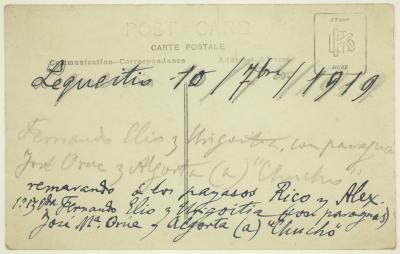 POST CARD
CARTE POSTALE
Communication-Correspondance
STAMP
HERE
Lequeitio 10 / 7bre / 1919
Fernando Elio y Urigoitia, con paraguas
José Orue y Algorta (a) "Chucho"
remarando a los payasos Rico y Alex.
Fernando Elio y Urigoitia (con paraguas)
José Mª Orúe y Algorta (a) "Chucho"